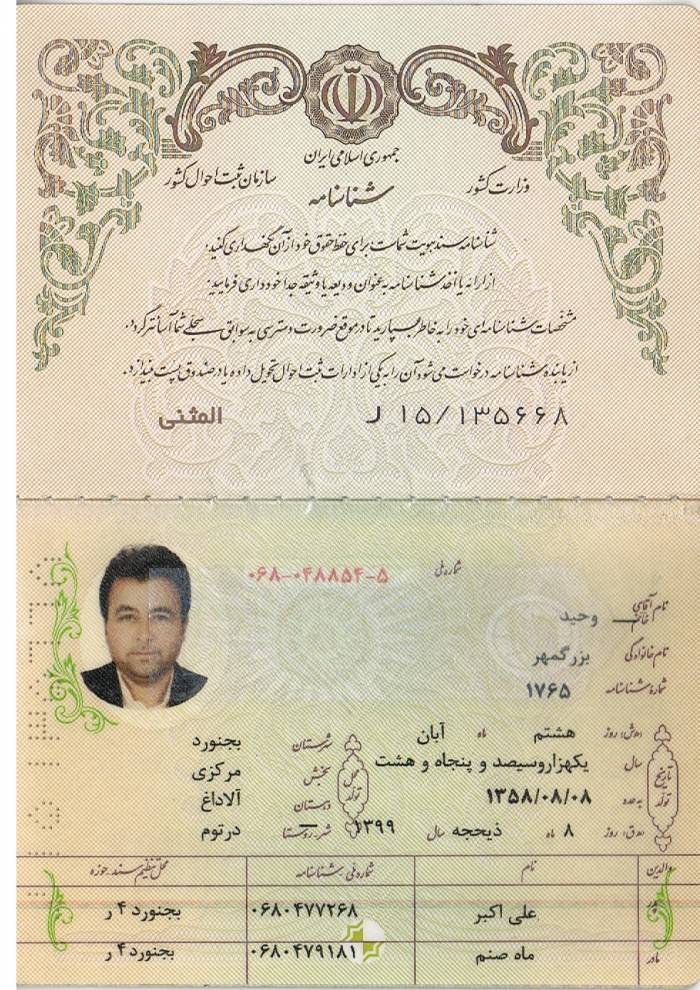 جمهوری اسلامی ایران
وزارت کشور
سازمان ثبت احوال کشور
شناسنامه
شناسنامه سند هویت شماست برای حفظ حقوق خود از آن نگهداری کنید.
از ارائه یا اخذ شناسنامه به عنوان ودیعه یا وثیقه جداً خودداری فرمایید.
مشخصات شناسنامه‌ای خود را به خاطر بسپارید تا در موقع ضرورت دسترسی به سوابق سجلی شما آسانتر گردد.
از یابنده شناسنامه درخواست می‌شود آن را به یکی از ادارات ثبت احوال تحویل داده یا در صندوق پست بیندازد.
۱۵/۱۳۵۶۶۸ ر المثنی
شماره ملی ۰۶۸-۰۴۸۸۵۴-۵
نام آقای خانم وحید
نام خانوادگی بزرگمهر
شماره شناسنامه ۱۷۶۵
تاریخ تولد
(ه‍.ش) روز هشتم ماه آبان
سال یکهزاروسیصد و پنجاه و هشت
به عدد ۱۳۵۸/۰۸/۰۸
(ه‍.ق) روز ۸ ماه ذیحجه سال ۱۳۹۹
محل تولد
شهرستان بجنورد
بخش مرکزی
دهستان آلاداغ
شهر-روستا درتوم
والدین نام شماره ملی-شناسنامه محل تنظیم سند-حوزه
پدر علی اکبر ۰۶۸۰۴۷۷۲۶۸ بجنورد ۴ ر
مادر ماه صنم ۰۶۸۰۴۷۹۱۸۱ بجنورد ۴ ر